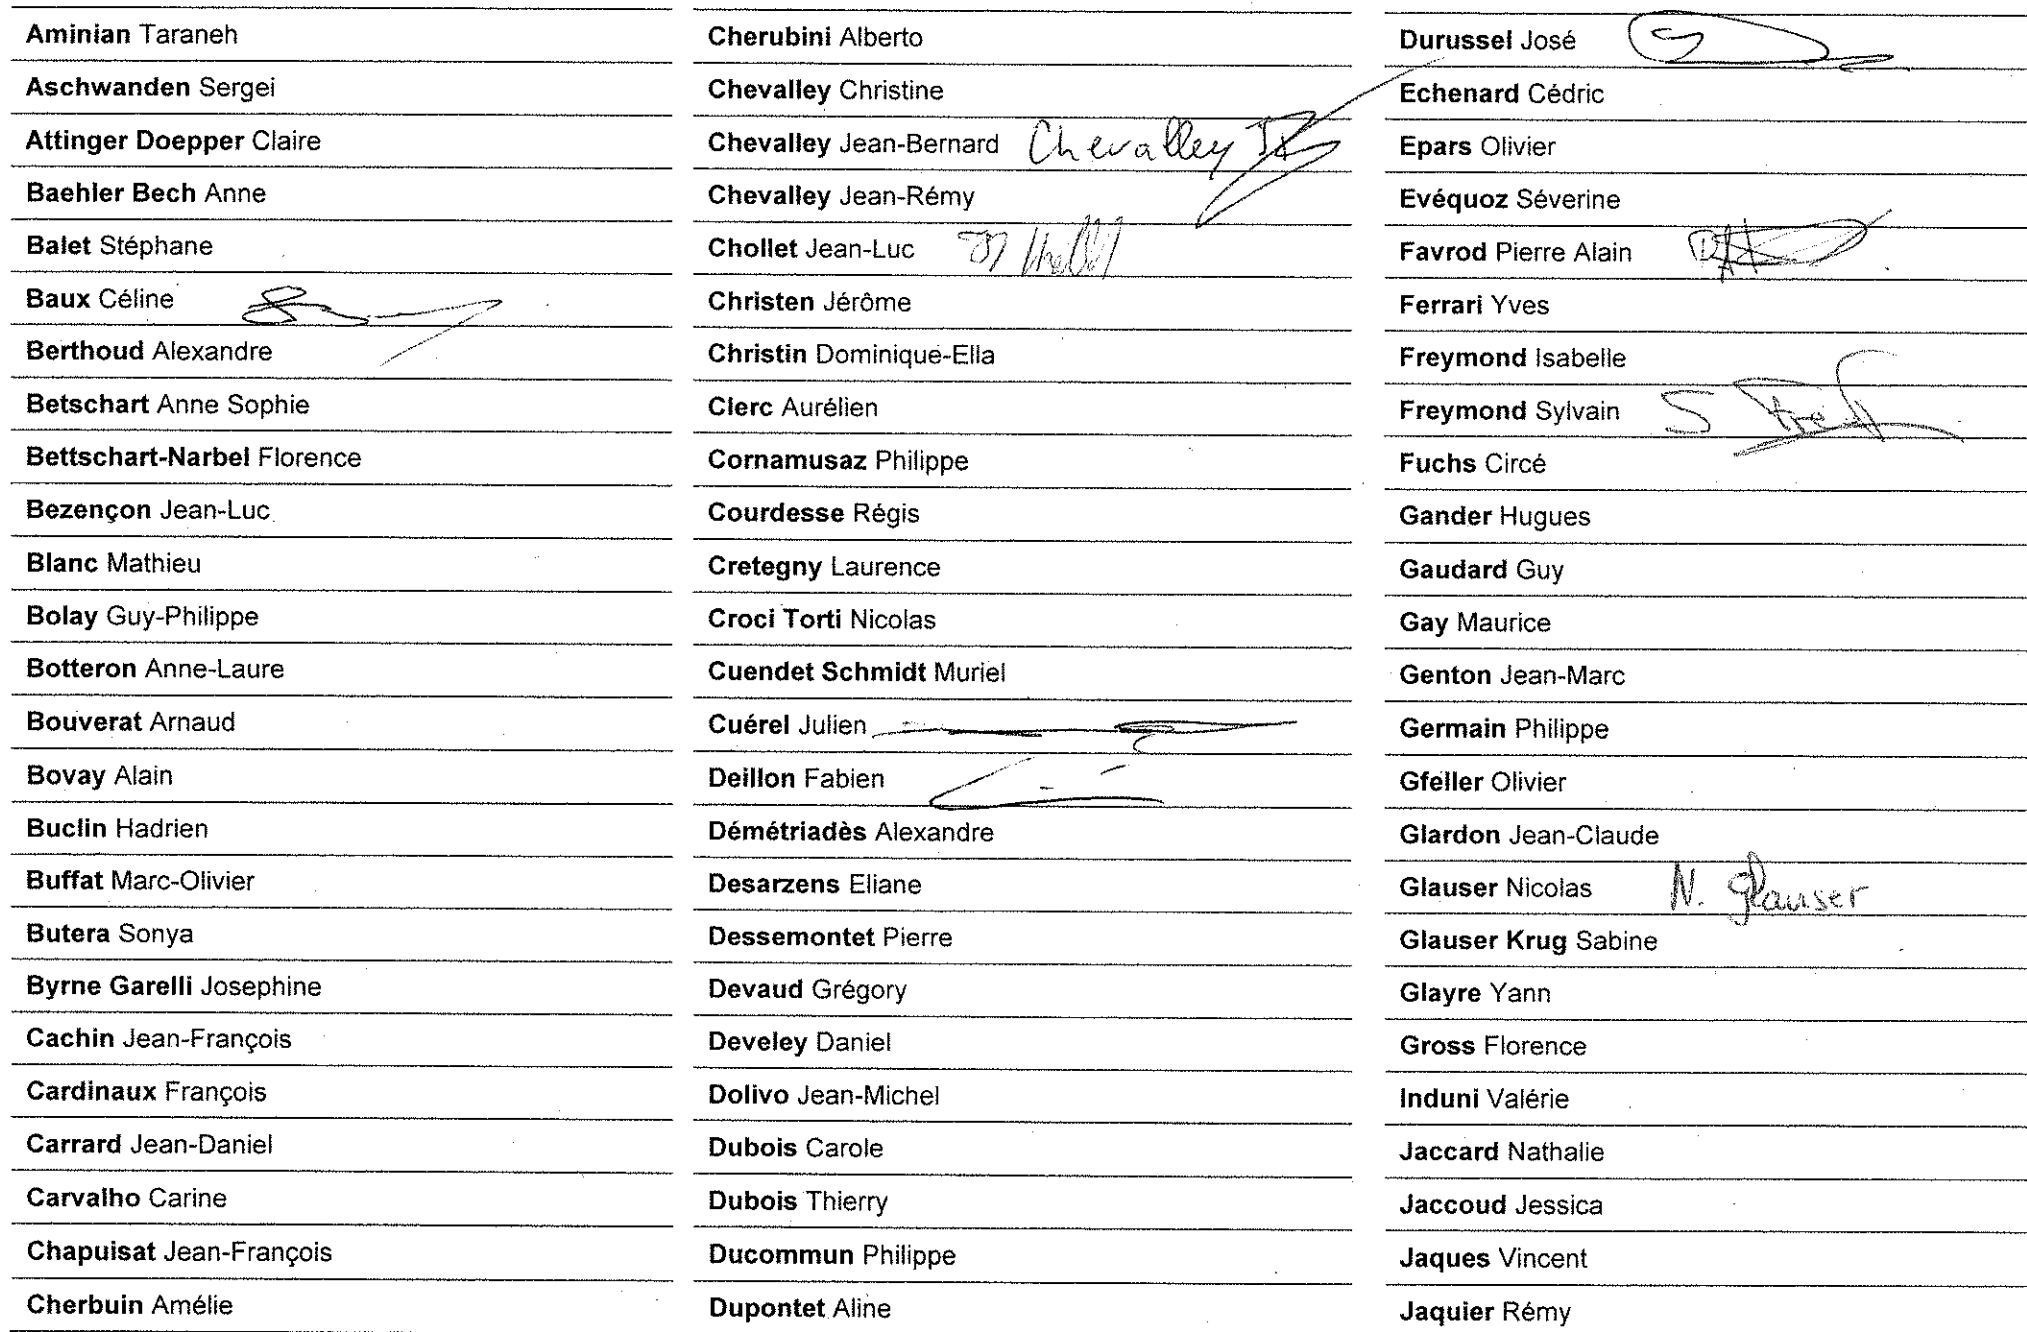 Aminian Taraneh
Aschwanden Sergei
Attinger Doepper Claire
Baehler Bech Anne
Balet Stéphane
Baux Céline
Berthoud Alexandre
Betschart Anne Sophie
Bettschart-Narbel Florence
Bezençon Jean-Luc
Blanc Mathieu
Bolay Guy-Philippe
Botteron Anne-Laure
Bouverat Arnaud
Bovay Alain
Buclin Hadrien
Buffat Marc-Olivier
Butera Sonya
Byrne Garelli Josephine
Cachin Jean-François
Cardinaux François
Carrard Jean-Daniel
Carvalho Carine
Chapuisat Jean-François
Cherbuin Amélie
Cherubini Alberto
Chevalley Christine
Chevalley Jean-Bernard Chevalley
Chevalley Jean-Rémy
Chollet Jean-Luc
Christen Jérôme
Christin Dominique-Ella
Clerc Aurélien
Cornamusaz Philippe
Courdesse Régis
Cretegny Laurence
Croci Torti Nicolas
Cuendet Schmidt Muriel
Cuérel Julien
Deillon Fabien
Démétriadès Alexandre
Desarzens Eliane
Dessemontet Pierre
Devaud Grégory
Develey Daniel
Dolivo Jean-Michel
Dubois Carole
Dubois Thierry
Ducommun Philippe
Dupontet Aline
Durussel José
Echenard Cédric
Epars Olivier
Evéquoz Séverine
Favrod Pierre Alain
Ferrari Yves
Freymond Isabelle
Freymond Sylvain S
Fuchs Circé
Gander Hugues
Gaudard Guy
Gay Maurice
Genton Jean-Marc
Germain Philippe
Gfeller Olivier
Glardon Jean-Claude
Glauser Nicolas N. Glauser
Glauser Krug Sabine
Glayre Yann
Gross Florence
Induni Valérie
Jaccard Nathalie
Jaccoud Jessica
Jaques Vincent
Jaquier Rémy